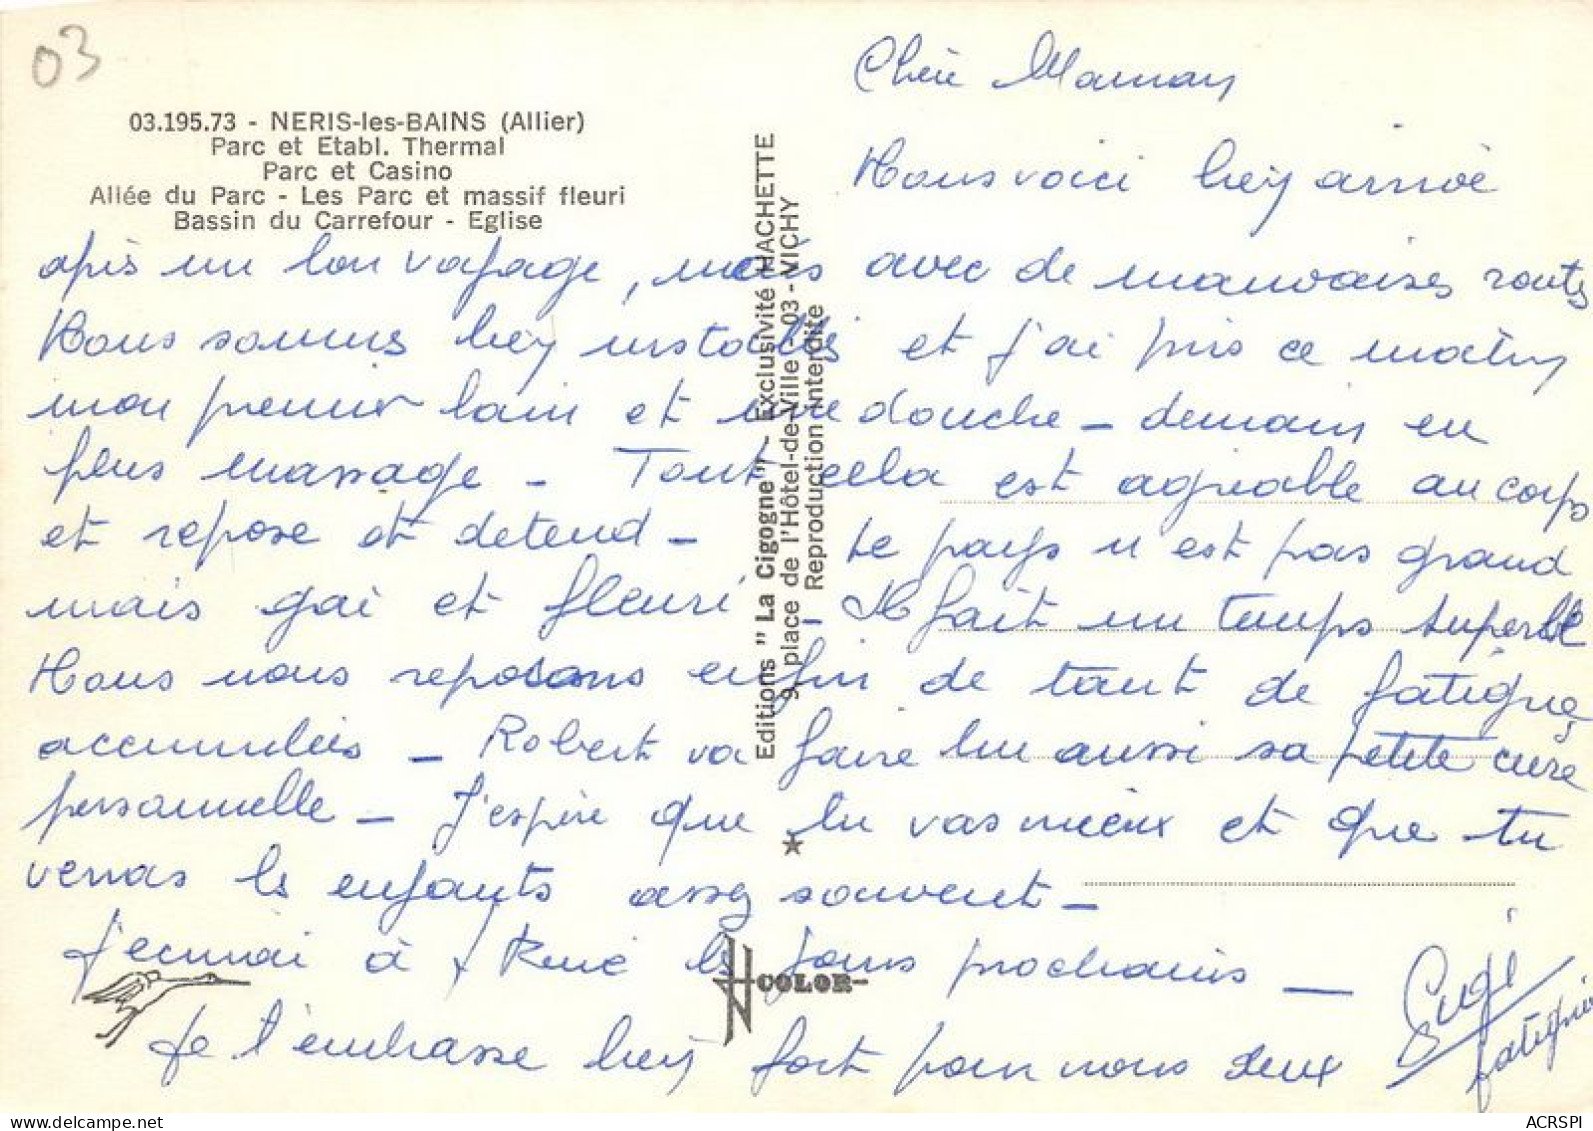 03
03.195.73 - NERIS-les-BAINS (Allier)
Parc et Etabl. Thermal
Parc et Casino
Allée du Parc - Les Parc et massif fleuri
Bassin du Carrefour - Eglise
Editions "La Cigogne" - Exclusivité HACHETTE
9, place de l'Hôtel-de-Ville - 03 - VICHY
Reproduction interdite
Chère Maman
Nous voici bien arrivé
après un bon voyage, mais avec de mauvaises routes
Nous sommes bien installés et j'ai pris ce matin
mon premier bain et une douche - demain en
plus massage - Tout cela est agréable au corps
et repose et detend - Le pays n'est pas grand
mais gai et fleuri Il fait un temps superbe
Nous nous reposons enfin de tant de fatigues
accumulées - Robert va faire lui aussi sa petite cure
personnelle - J'espère que tu vas mieux et que tu
verras les enfants assez souvent -
J'ecrirai à René les jours prochains -
Je t'embrasse bien fort pour nous deux
COLOR
ACRSPI